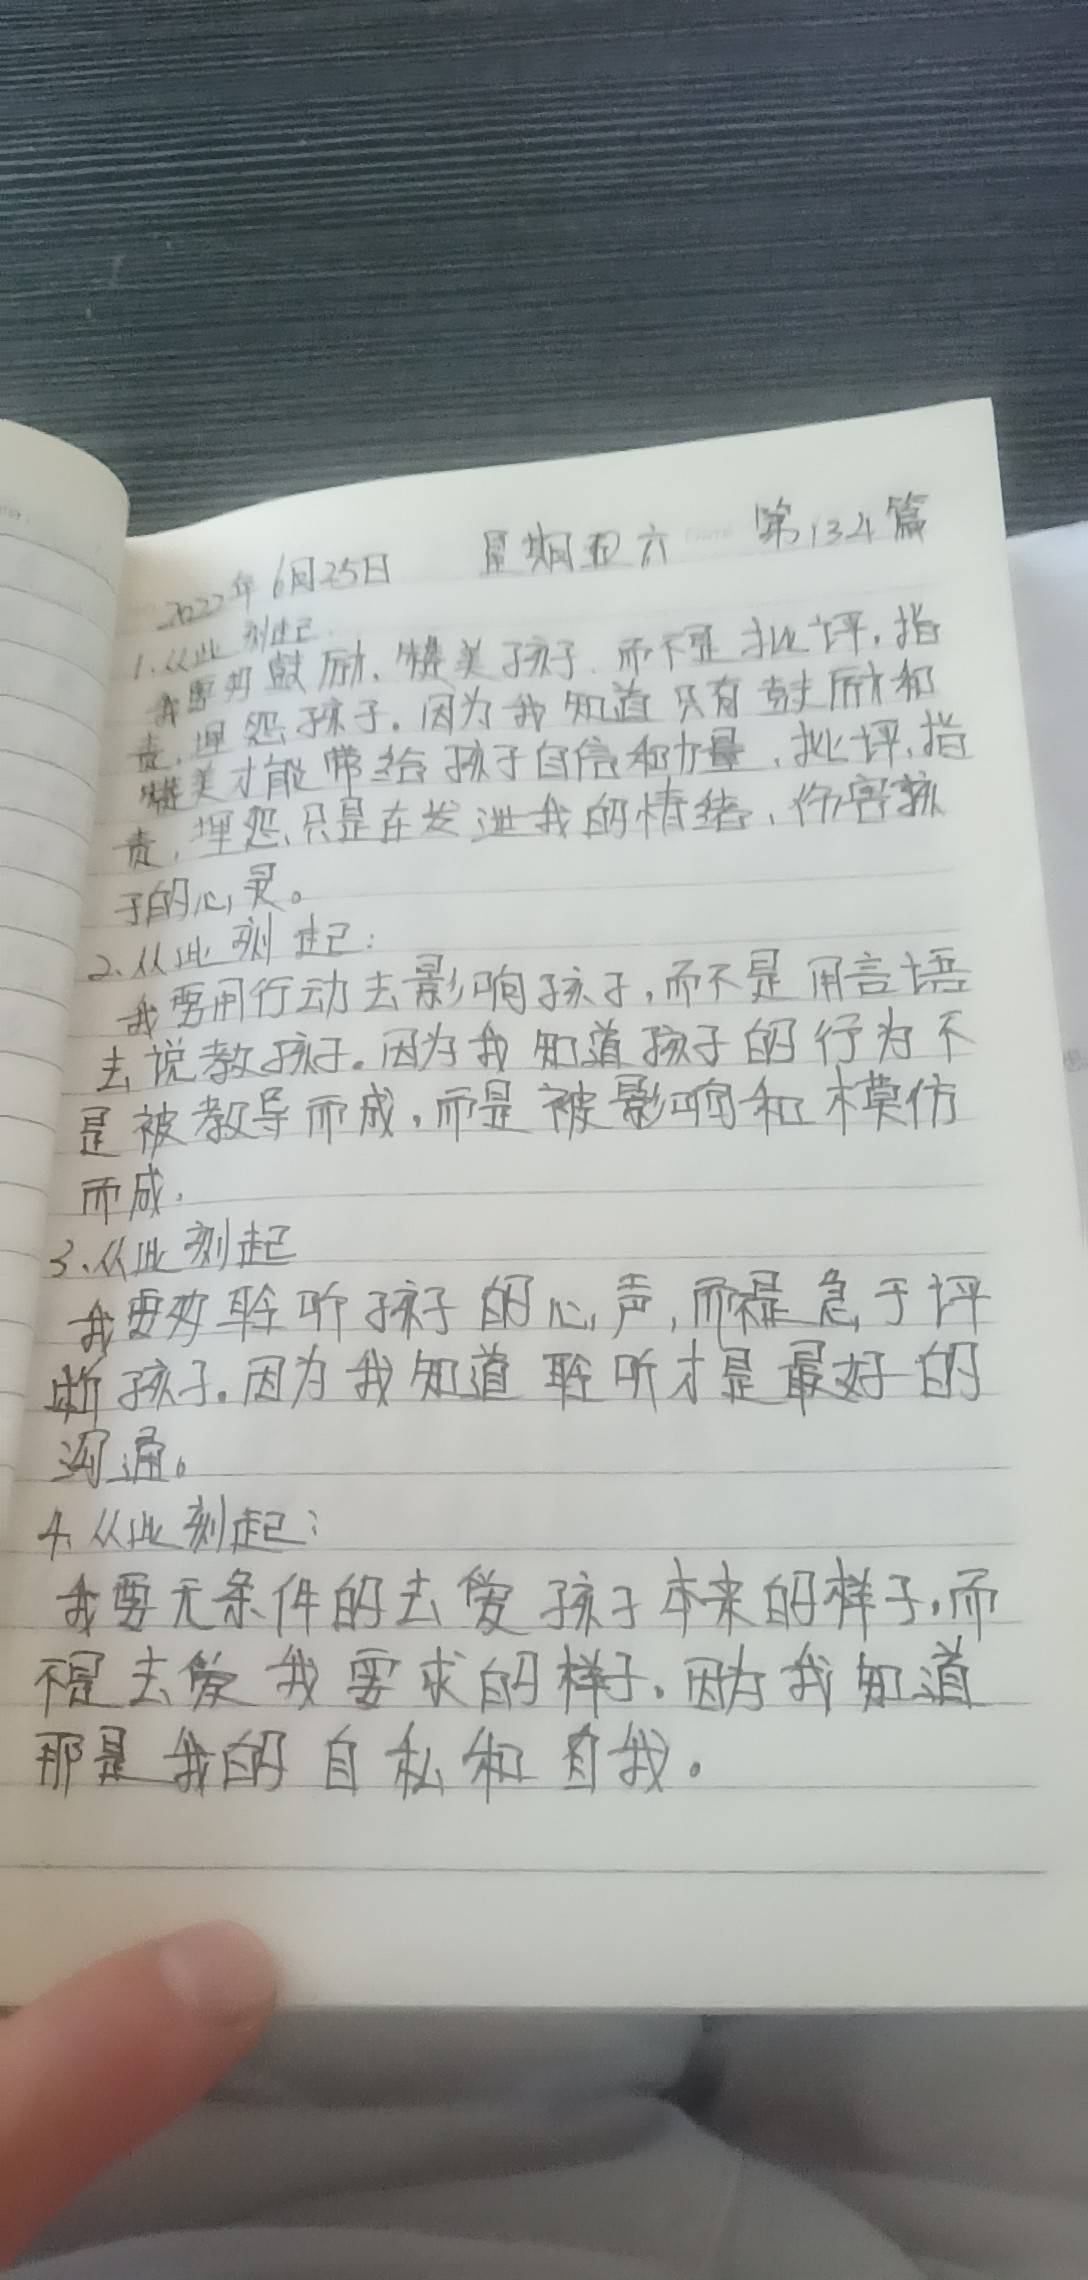 2022年6月25日 星期五六 第134篇
1.从此刻起
我要多鼓励、赞美孩子.而不是批评,指
责,埋怨孩子。因为我知道只有鼓励和
赞美才能带给孩子自信和力量,批评,指
责,埋怨、只是在发泄我的情绪、伤害孩
子的心灵。
2.从此刻起:
我要用行动去影响孩子,而不是用言语
去说教孩子。因为我知道孩子的行为不
是被教导而成,而是被影响和模仿
而成.
3.从此刻起
我要多聆听孩子的心声,而不是急于评
断孩子.因为我知道聆听才是最好的
沟通。
4.从此刻起:
我要无条件的去爱孩子本来的样子,而
不是去爱我要求的样子.因为我知道
那是我的自私和自我。